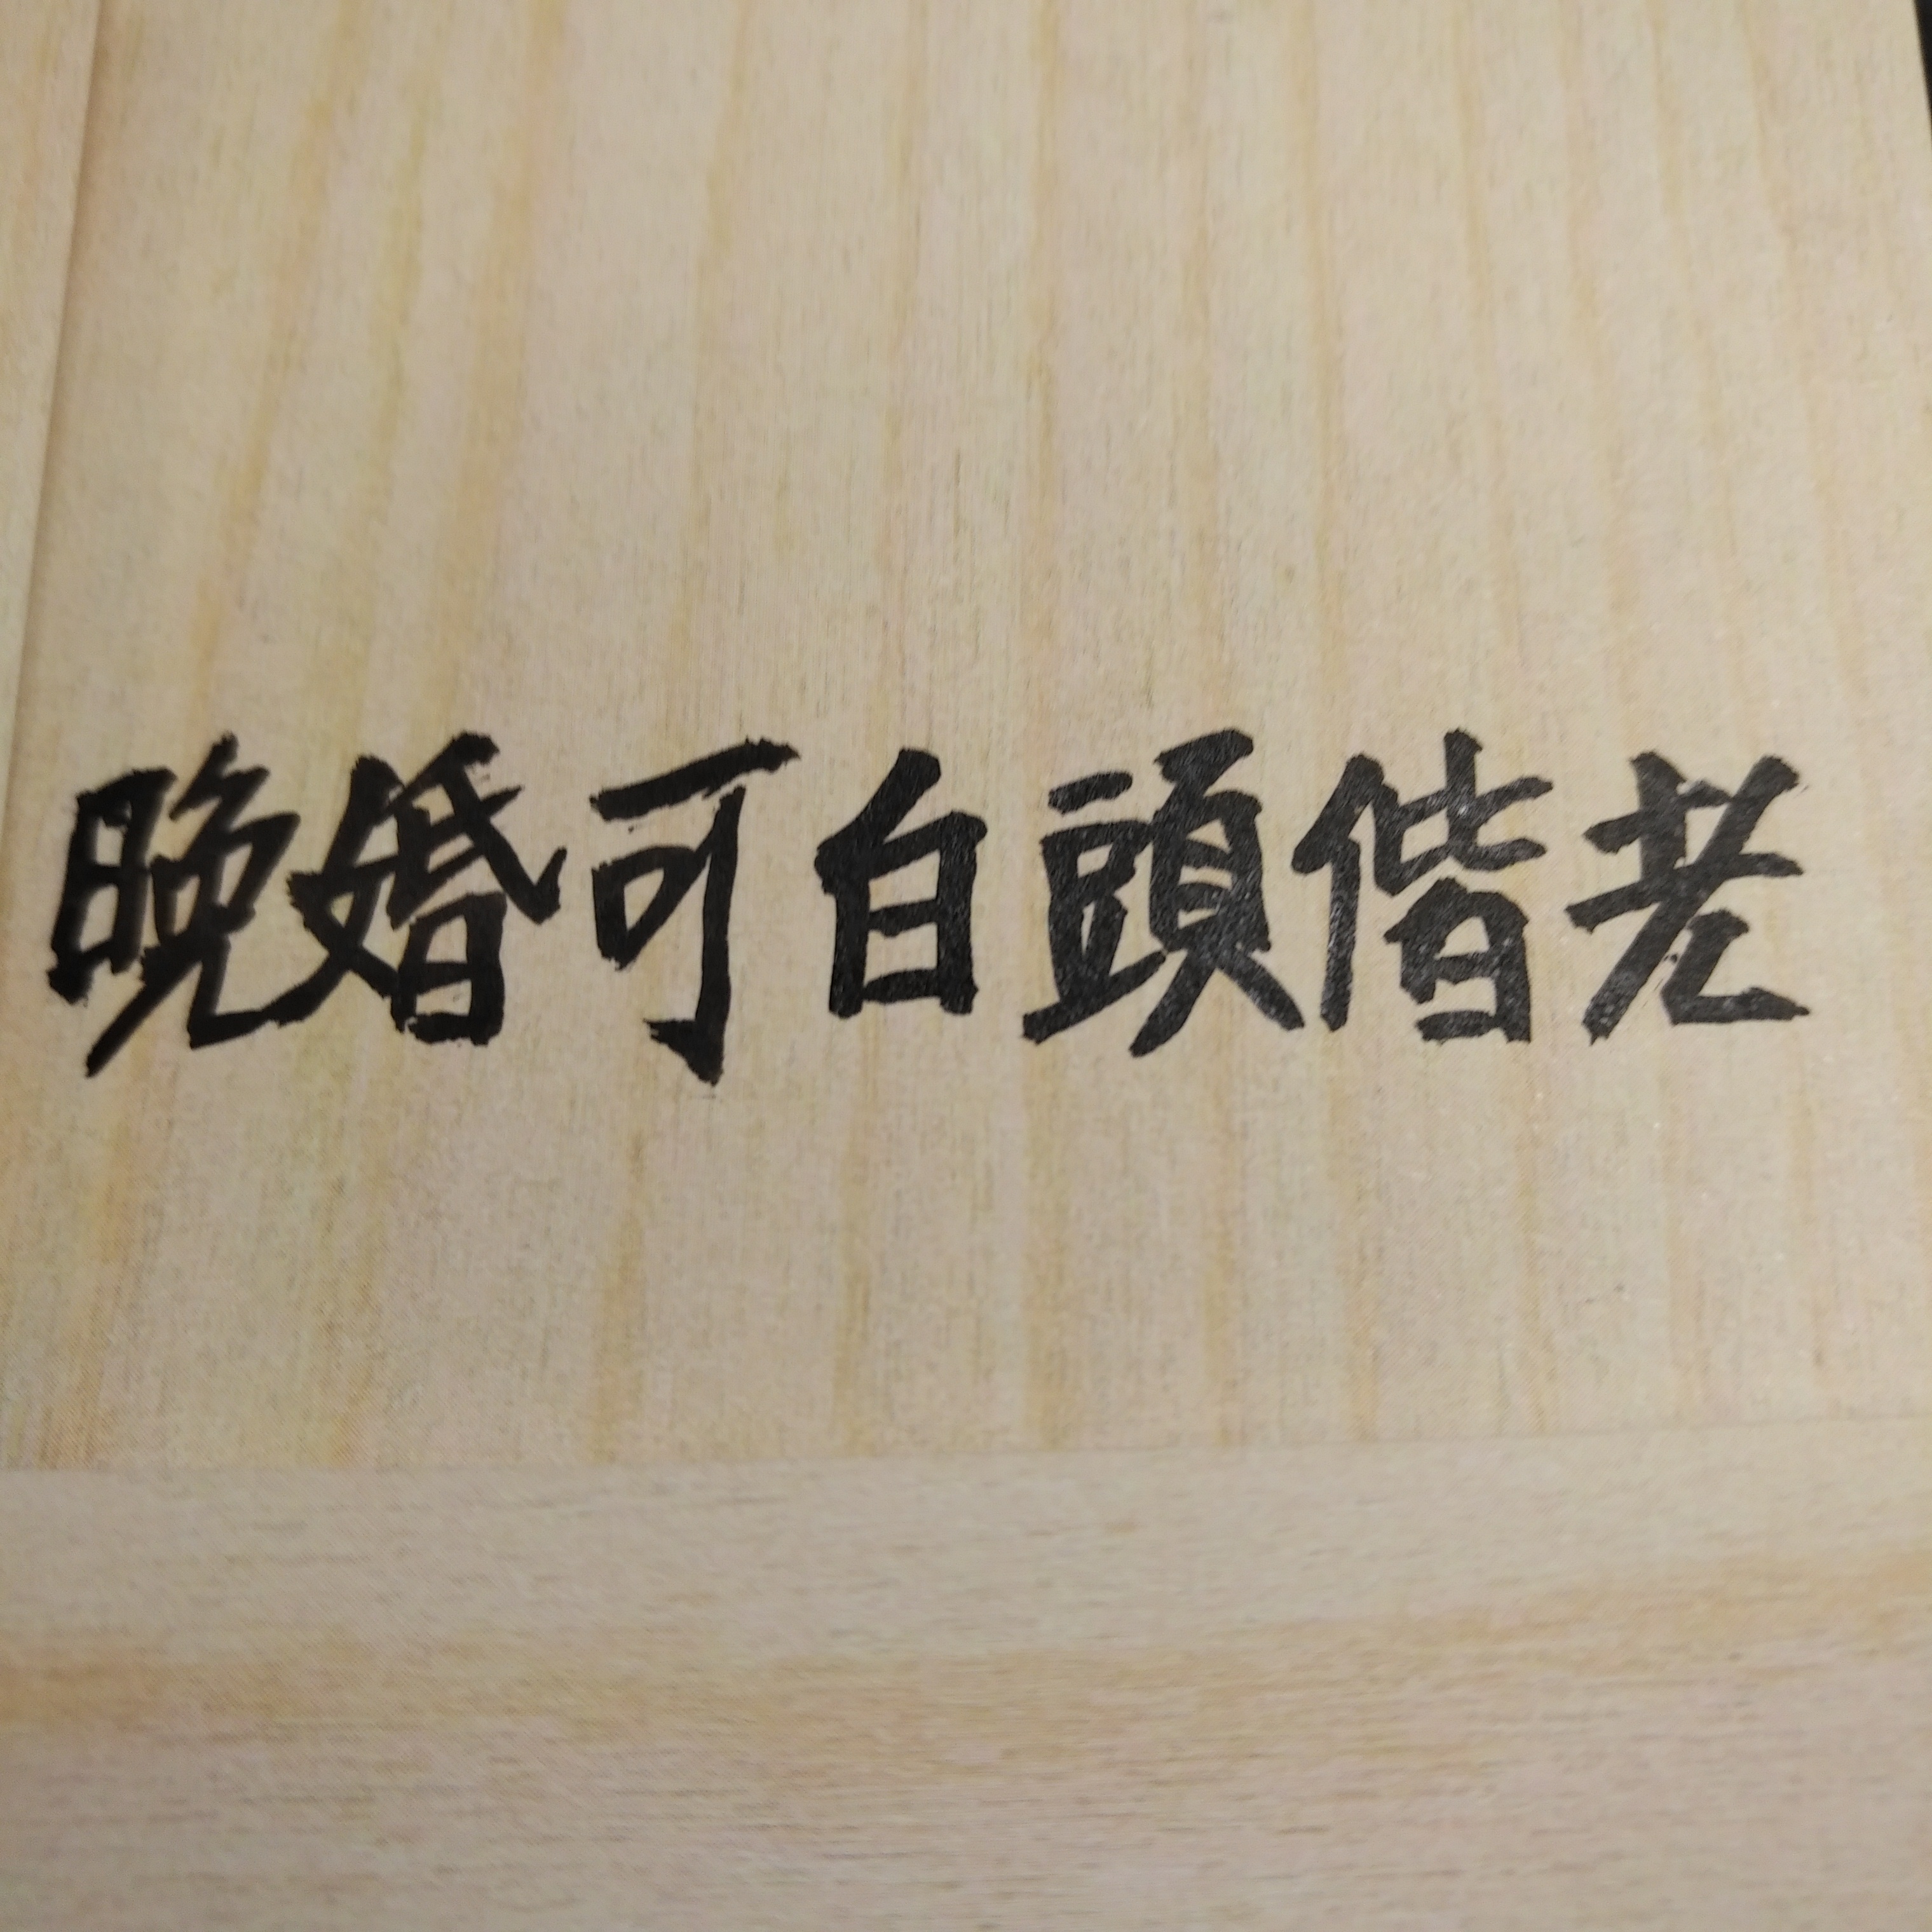 晚婚可白頭偕老